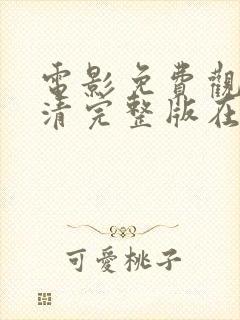 電影免費觀
清完整版在
可愛桃子